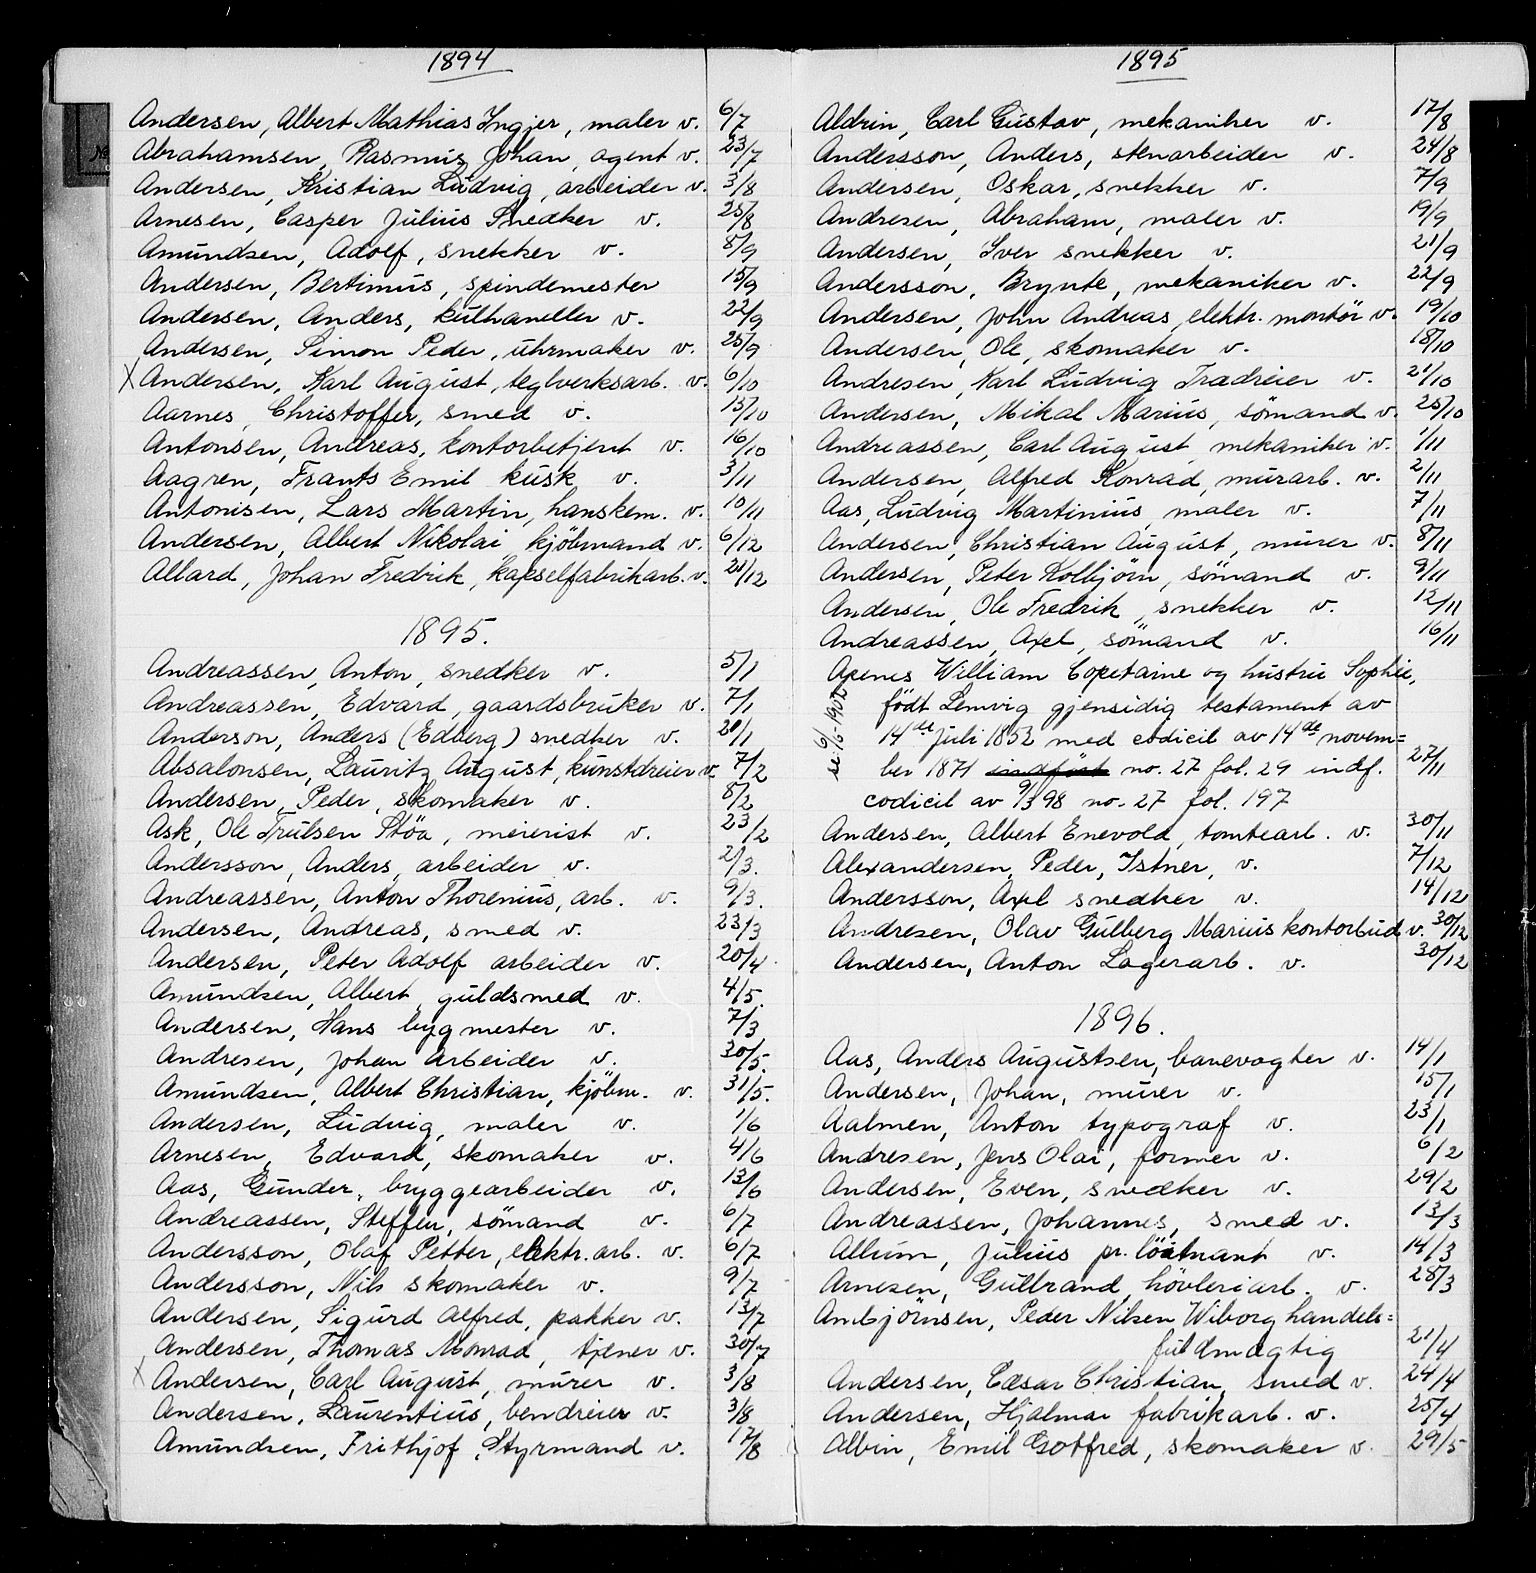 1894
Andersen, Albert Mathias Ingjer, maler v. 6/7
Abrahamsen, Rasmus Johan, agent v. 23/7
Andersen, Kristian Ludvig, arbeider v. 3/8
Arnesen, Casper Julius Snedker v. 25/8
Amundsen, Adolf, snekker v. 5/9
Andersen, Bertinius, spindemester 15/9
Andersen, Anders, kulhandler v. 22/9
Andersen, Simon Peder, uhrmaker v. 25/9
X Andersen, Karl August, teglverksarb. v. 6/10
Aarnes, Christoffer, smed v. 15/10
Antonsen, Andreas, kontorbetjent v. 16/10
Aagren, Frants Emil kusk v. 3/11
Antonisen, Lars Martin, hanskem. v. 10/11
Andersen, Albert Nikolai kjöbmand v. 6/12
Allard, Johan Fredrik, kapselfabrikarb. v. 21/12
1895.
Andreassen, Anton, snedker v. 5/1
Andreassen, Edvard, gaardsbruker v. 7/1
Anderson, Anders (Edberg) snedker v. 21/1
Absalonsen, Lauritz August, kunstdreier v. 7/2
Andersen, Peder, skomaker v. 8/2
Ask, Ole Trulsen Stöa, meierist v. 23/2
Andersson, Anders, arbeider v. 2/3.
Andreassen, Anton Thorenius, arb. v. 9/3.
Andersen, Andreas, smed v. 23/3
Andersen, Peter Adolf arbeider v. 20/4.
Amundsen, Albert, guldsmed v. 4/5.
Andersen, Hans bygmester v. 7/3
Andresen, Johan arbeider v. 30/5.
Amundsen, Albert Christian, kjöbm. v. 31/5.
Andersen, Ludvig, maler v. 1/6
Arnesen, Edvard, skomaker v. 4/6
Aas, Gunder, bryggearbeider v. 13/6
Andreassen, Steffen, sömand v. 6/7
Andersson, Olaf Petter, elektr. arb. v. 6/7
Andersson, Nils skomaker v. 9/7
Andersen, Sigurd Alfred, pakker v. 13/7
Andersen, Thomas Monrad, tjener v. 30/7
X Andersen, Carl August, murer v. 3/8
Andersen, Laurentius, bendreier v. 3/8
Amundsen, Frithjof, Styrmand v. 17/8
1895
Aldrin, Carl Gustav, mekaniker v. 17/8
Andersson, Anders, stenarbeider v. 24/8
Andersen, Oskar, snekker v. 7/9
Andresen, Abraham, maler v. 19/9
Andersen, Iver snekker v. 21/9
Andersson, Brynte, mekaniker v. 22/9
Andersen, John Andreas, elektr. montör v. 19/10
Andersen, Ole, skomaker v. 18/10
Andresen, Karl Ludvig Trædreier v. 21/10
Andersen, Mikal Marius, sömand v. 25/10
Andreassen, Carl August, mekaniker v. 1/11
Andersen, Alfred Konrad, murarb. v. 2/11
Aas, Ludvig Martinius, maler v. 7/11
Andersen, Christian August, murer v. 8/11
Andersen, Peter Kolbjörn, sömand v. 9/11
Andersen, Ole Fredrik, snekker v. 12/11
Andreassen, Axel, sömand v. 16/11
Apenes William Copetaine og hustru Sophie,
födt Lemvig gjensidig testament av
14de juli 1852 med codicil av 14de novem=
ber 1871 indfört no. 27 fol. 29 indf. 27/11
codicil av 9/3 98 no. 27 fol. 197
Andersen, Albert Enevold, tomtearb. v. 30/11
Alexandersen, Peder, Istner, v. 7/12
Andersson, Axel snedker v. 14/12
Andresen, Olav Gulberg Marius kontorbud v. 30/12
Andersen, Anton Lagerarb. v. 30/12
1896.
Aas, Anders Augustsen, banevogter v. 14/1
Andersen, Johan, murer v. 15/1
Aalmen, Anton typograf v. 23/1
Andresen, Jens Olai, former v. 6/2
Andersen, Even, snedker v. 29/2
Andreassen, Johannes, smed v. 13/3
Allum, Julius pr. löitnant v. 14/3
Arnesen, Gulbrand, hövleriarb. v. 28/3
Ambjörnsen, Peder Nilsen Wiborg handels=
fuldmægtig 21/4
Andersen, Cæsar Christian, smed v. 24/4
Andersen, Hjalmar fabrikarb. v. 25/4
Albin, Emil Gotfred, skomaker v. 29/5